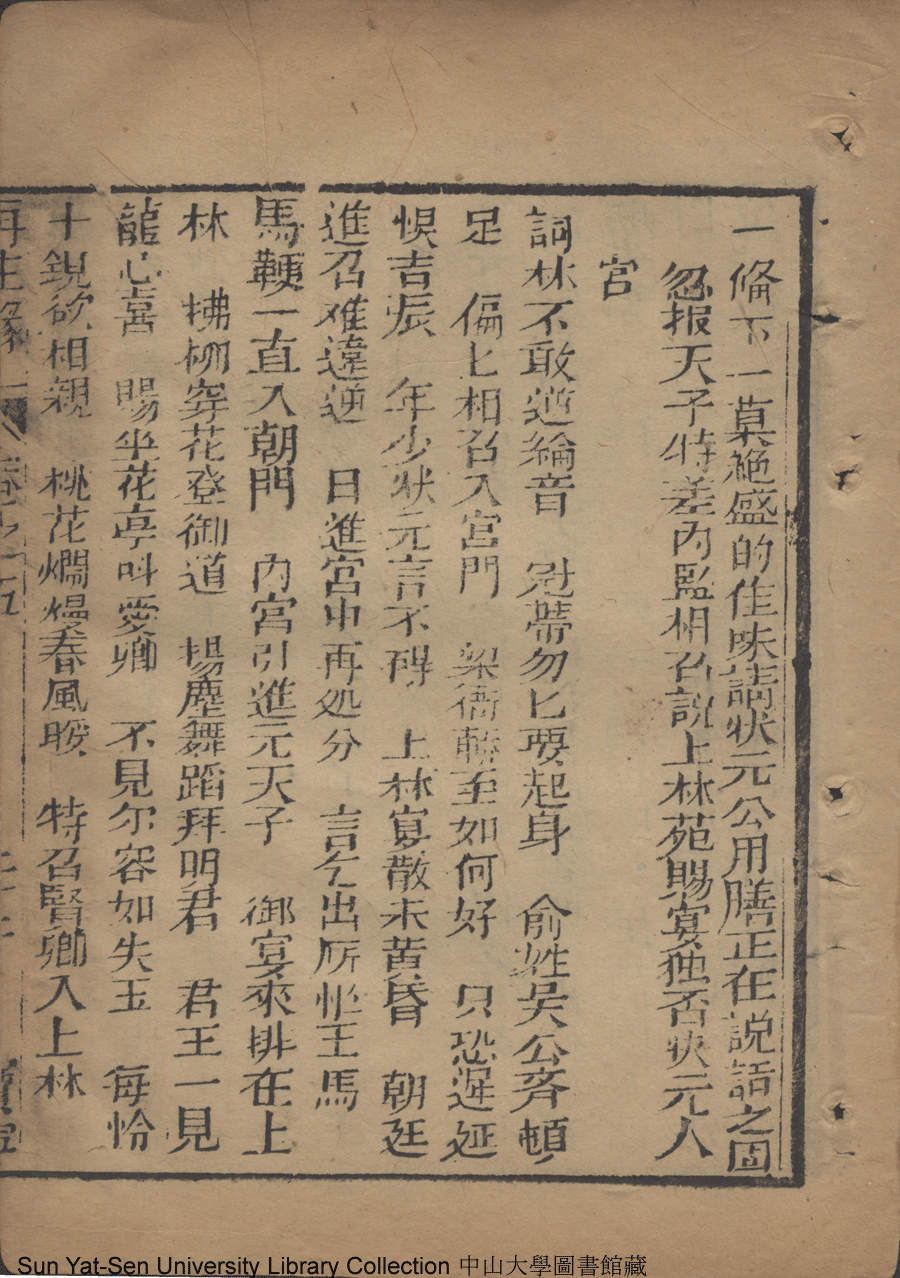 一條下一莫絶盛的佳味請狀元公用膳正在説話之固
忽报天子特差内監相召説上林苑賜宴独否状元人
宫
詞林不敢道綸音　冠蒂勿匕要起身　俞姓吴公斉頓
足　偏匕相召入宮門　　轎至如何好　只恐遲延
悞吉辰　年少状元言不碍　上林宴散未黄昏　朝廷
進召难違逆　日進宮中再处分　言乞出厛忙王馬
馬鞭一直入朝門　内宮引進元天子　御宴來排在上
林　拂栁穿花登御道　揚塵舞蹈拜明君　君王一見
龍心喜　賜坐花亭呌愛卿　不見尔容如失玉　每恰
十銳欲相親　桃花爛熳春風暖　特召賢卿入上林
再生緣　卷之十五
Sun Yat-Sen University Library Collection 中山大學圖書館藏